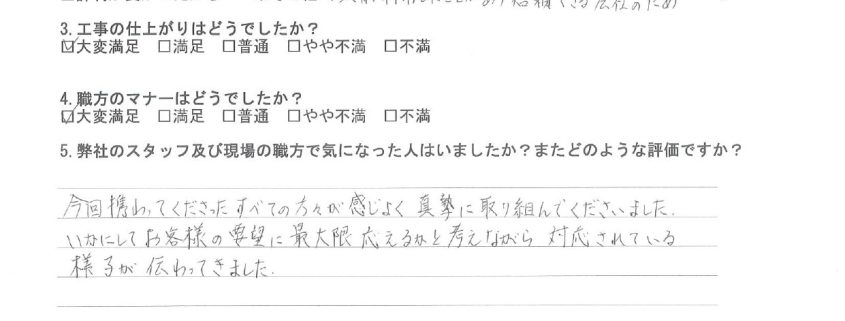 信頼できる会社のため
3.工事の仕上がりはどうでしたか？
☑大変満足 □満足 □普通 □やや不満 □不満
4.職方のマナーはどうでしたか？
☑大変満足 □満足 □普通 □やや不満 □不満
5.弊社のスタッフ及び現場の職方で気になった人はいましたか？またどのような評価ですか？
今回携わってくださったすべての方々が感じよく真摯に取り組んでくださいました.
いかにしてお客様の要望に最大限応えるかと考えながら対応されている
様子が伝わってきました.